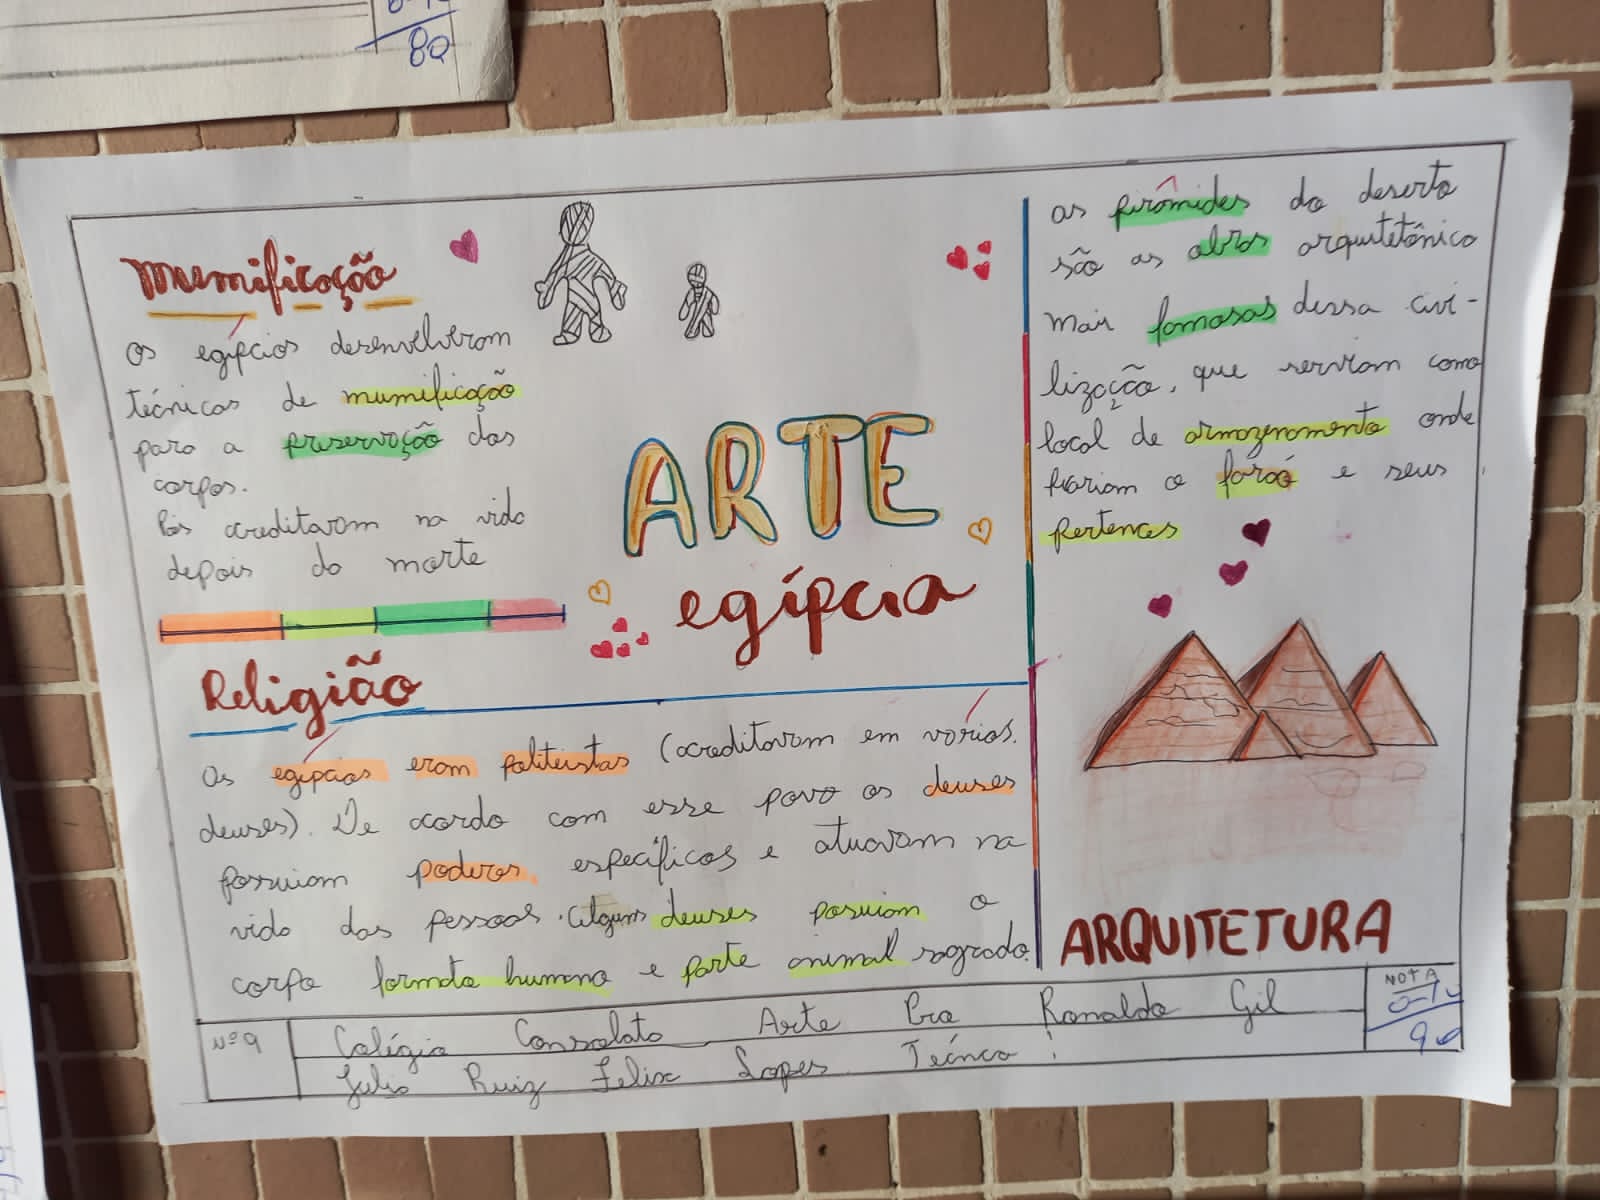 80
Mumificação
Os egípcios desenvolveram
técnicas de mumificação
para a preservação dos
corpos.
Pois acreditavam na vida
depois da morte
ARTE
egípcia
Religião
Os egípcios eram politeistas (acreditavam em vários.
deuses). De acordo com esse povo os deuses
possuiam poderes específicos e atuavam na
vida das pessoas. Alguns deuses posuiam o
corpo formato humano e parte animal sagrado.
as pirâmides do deserto
são as obras arquitetônica
mais famosas dessa civi-
lização, que serviam como
local de armazenamento onde
ficariam o faraó e seus
pertences
ARQUITETURA
Nº 9
Colégio Consolata Arte Pro Ronaldo Gil
Julio Ruiz Felix Lopes Tecnca !
NOTA
0-10
90